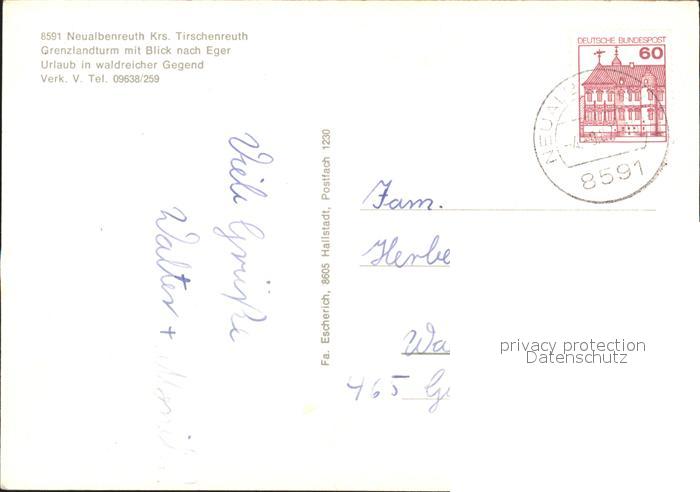 8591 Neualbenreuth Krs. Tirschenreuth
Grenzlandturm mit Blick nach Eger
Urlaub in waldreicher Gegend
Verk. V. Tel. 09638/259
DEUTSCHE BUNDESPOST
60
8591
Viele Grüße
Walter +
Fa. Escherich, 8605 Hallstadt, Postfach 1230
Fam.
Herbe
Wa
465 Ge
privacy protection
Datenschutz